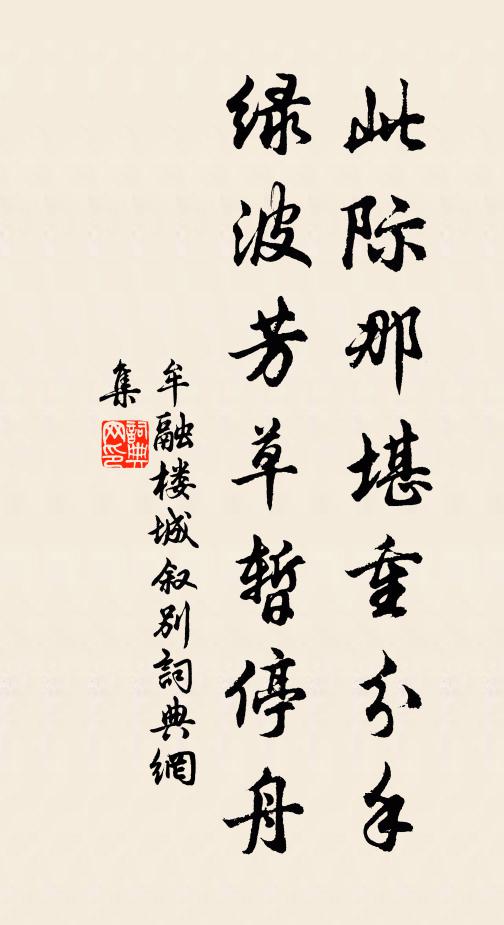 此际那堪重分手
绿波芳草暂停舟
牟融楼城叙别詞典網
集
詞典网印